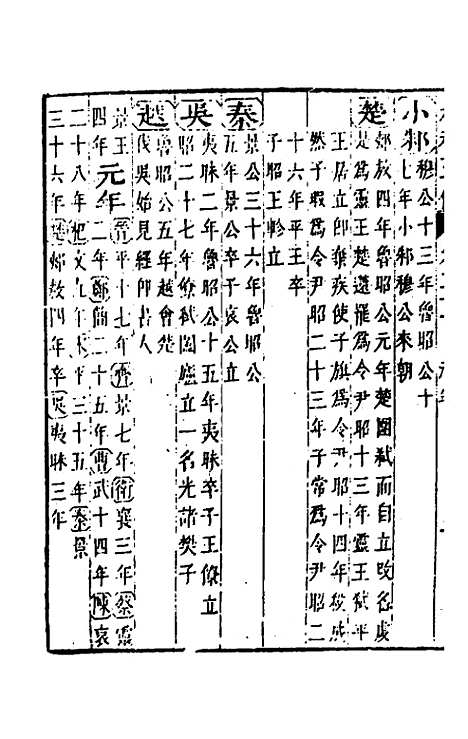 小邾穆公十三年魯昭公十
七年小邾穆公來朝
楚郟敖四年魯昭公元年楚圍弒而自立改名虔
是爲靈王楚薳罷爲令尹昭十三年靈王弒平
王居立卽棄疾使子旗爲令尹昭十四年殺成
然子瑕爲令尹昭二十三年子常爲令尹昭二
十六年平王卒
子昭王軫立
秦景公三十六年魯昭公
五年景公卒子哀公立
吳夷昧二年魯昭公十五年夷昧卒子王僚立
昭二十七年僚弒闔廬立一名光諸樊子
越魯昭公五年越會楚
伐吳始見經卽書人
景王
四年元年晉平十七年齊景七年衛襄三年蔡靈
二年鄭簡二十五年曹武十四年陳哀
二十八年杞文九年宋平三十五年秦景
三十六年楚郟敖四年卒吳夷昧三年